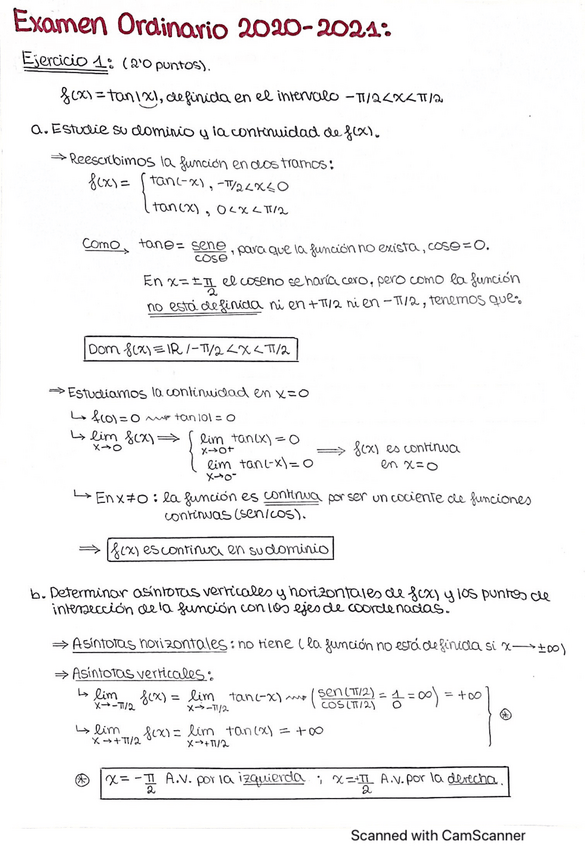 Examen Ordinario 2020-2021:
Ejercicio 1: (2'0 puntos).
f(x) = tan|x|, definida en el intervalo -π/2<x<π/2
a. Estudie su dominio y la continuidad de f(x).
⇒ Reescribimos la función en dos tramos:
f(x) = { tan(-x), -π/2<x≤0
tan(x), 0<x<π/2
Como, tanθ = senθ/cosθ, para que la función no exista, cosθ=0.
En x=±π/2 el coseno se haría cero, pero como la función
no está definida ni en +π/2 ni en -π/2, tenemos que:
Dom f(x) ≡ IR / -π/2<x<π/2
⇒ Estudiamos la continuidad en x=0
↳ f(0)=0 ⇝ tan|0|=0
↳ lim x→0 f(x) ⇒ { lim x→0+ tan(x) = 0 ⇒ f(x) es continua
lim x→0- tan(-x) = 0 en x=0
↳ En x≠0: la función es continua por ser un cociente de funciones
continuas (sen/cos).
⇒ f(x) es continua en su dominio
b. Determinar asíntotas verticales y horizontales de f(x) y los puntos de
intersección de la función con los ejes de coordenadas.
⇒ Asíntotas horizontales: no tiene (la función no está definida si x→±∞)
⇒ Asíntotas verticales:
↳ lim x→-π/2 f(x) = lim x→-π/2 tan(-x) ⇝ (sen(π/2)/cos(π/2) = 1/0 = ∞) = +∞
↳ lim x→+π/2 f(x) = lim x→+π/2 tan(x) = +∞ } ⊛
⊛ x = -π/2 A.V. por la izquierda ; x=+π/2 A.V. por la derecha.
Scanned with CamScanner